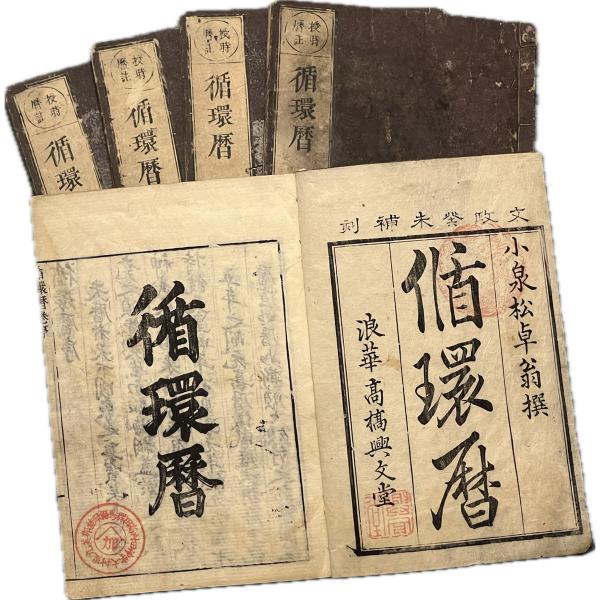 授時
暦註
循環暦
授時
暦註
循環暦
授時
暦註
循環暦
授時
暦註
循環
文政癸未補刻
小泉松卓翁撰
循環暦
浪華 高橋興文堂
循環暦